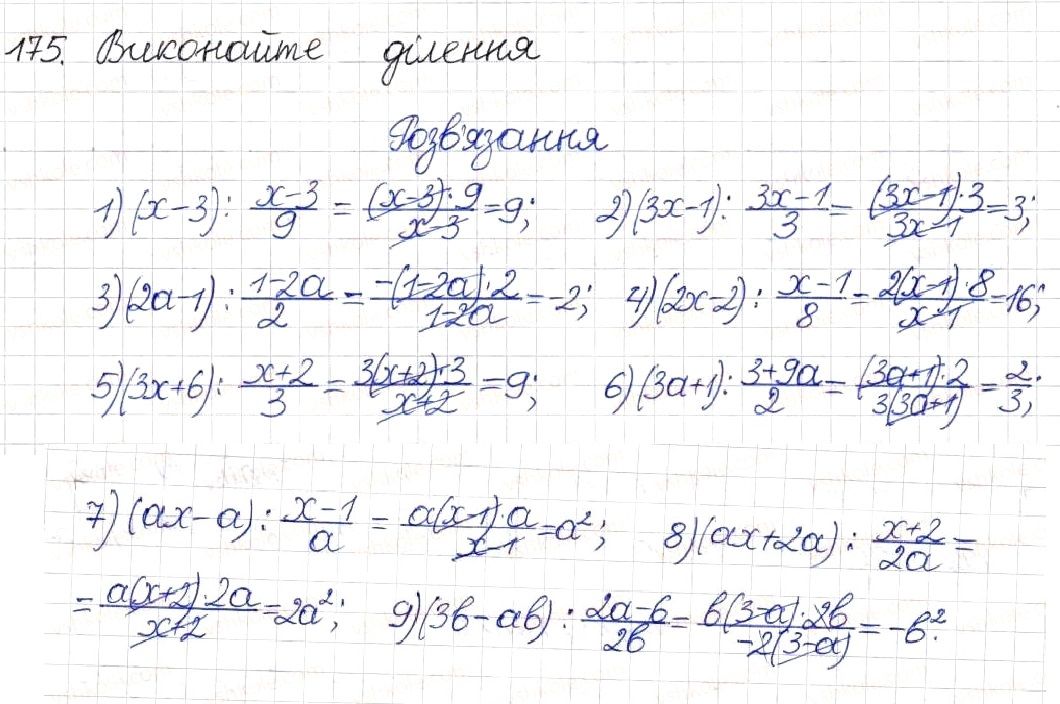 175. Виконайте ділення
Розв'язання
1) (x-3) : \frac{x-3}{9} = \frac{(x-3)·9}{x-3} = 9; 2) (3x-1) : \frac{3x-1}{3} = \frac{(3x-1)·3}{3x-1} = 3;
3) (2a-1) : \frac{1-2a}{2} = \frac{-(1-2a)·2}{1-2a} = -2; 4) (2x-2) : \frac{x-1}{8} = \frac{2(x-1)·8}{x-1} = 16;
5) (3x+6) : \frac{x+2}{3} = \frac{3(x+2)·3}{x+2} = 9; 6) (3a+1) : \frac{3+9a}{2} = \frac{(3a+1)·2}{3(3a+1)} = \frac{2}{3};
7) (ax-a) : \frac{x-1}{a} = \frac{a(x-1)·a}{x-1} = a²; 8) (ax+2a) : \frac{x+2}{2a} =
= \frac{a(x+2)·2a}{x+2} = 2a²; 9) (3b-ab) : \frac{2a-6}{2b} = \frac{b(3-a)·2b}{-2(3-a)} = -b².